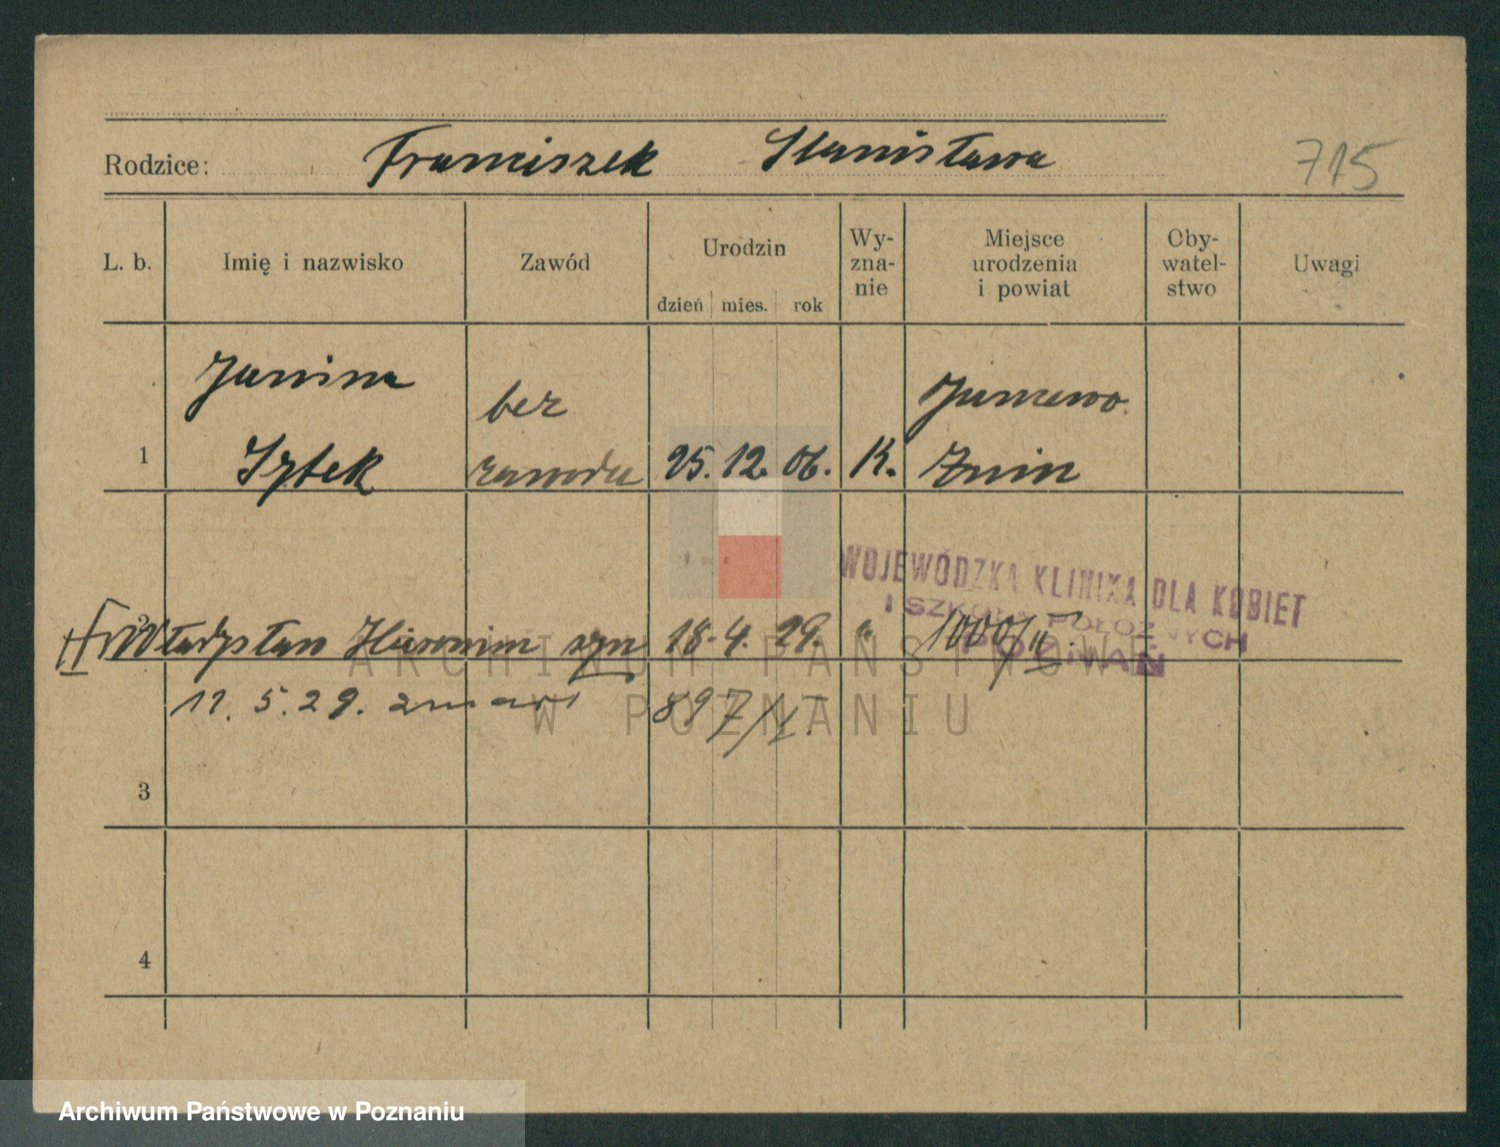 Rodzice: Franciszek Stanisława
715
L. b. Imię i nazwisko Zawód Urodzin dzień mies. rok Wy-zna-nie Miejsce urodzenia i powiat Oby-watel-stwo Uwagi
Janina bez
1 Sztek zawodu 25. 12. 06. K. Żnin
WOJEWÓDZKA KLINIKA DLA KOBIET
I SZKOŁA POŁOŻNYCH
POZNAŃ
Władysław Hieronim syn 18. 4. 29. " 1000/II
11. 5. 29. zmarł 897/I
3
4
ARCHIWUM PAŃSTWOWE
W POZNANIU
Archiwum Państwowe w Poznaniu